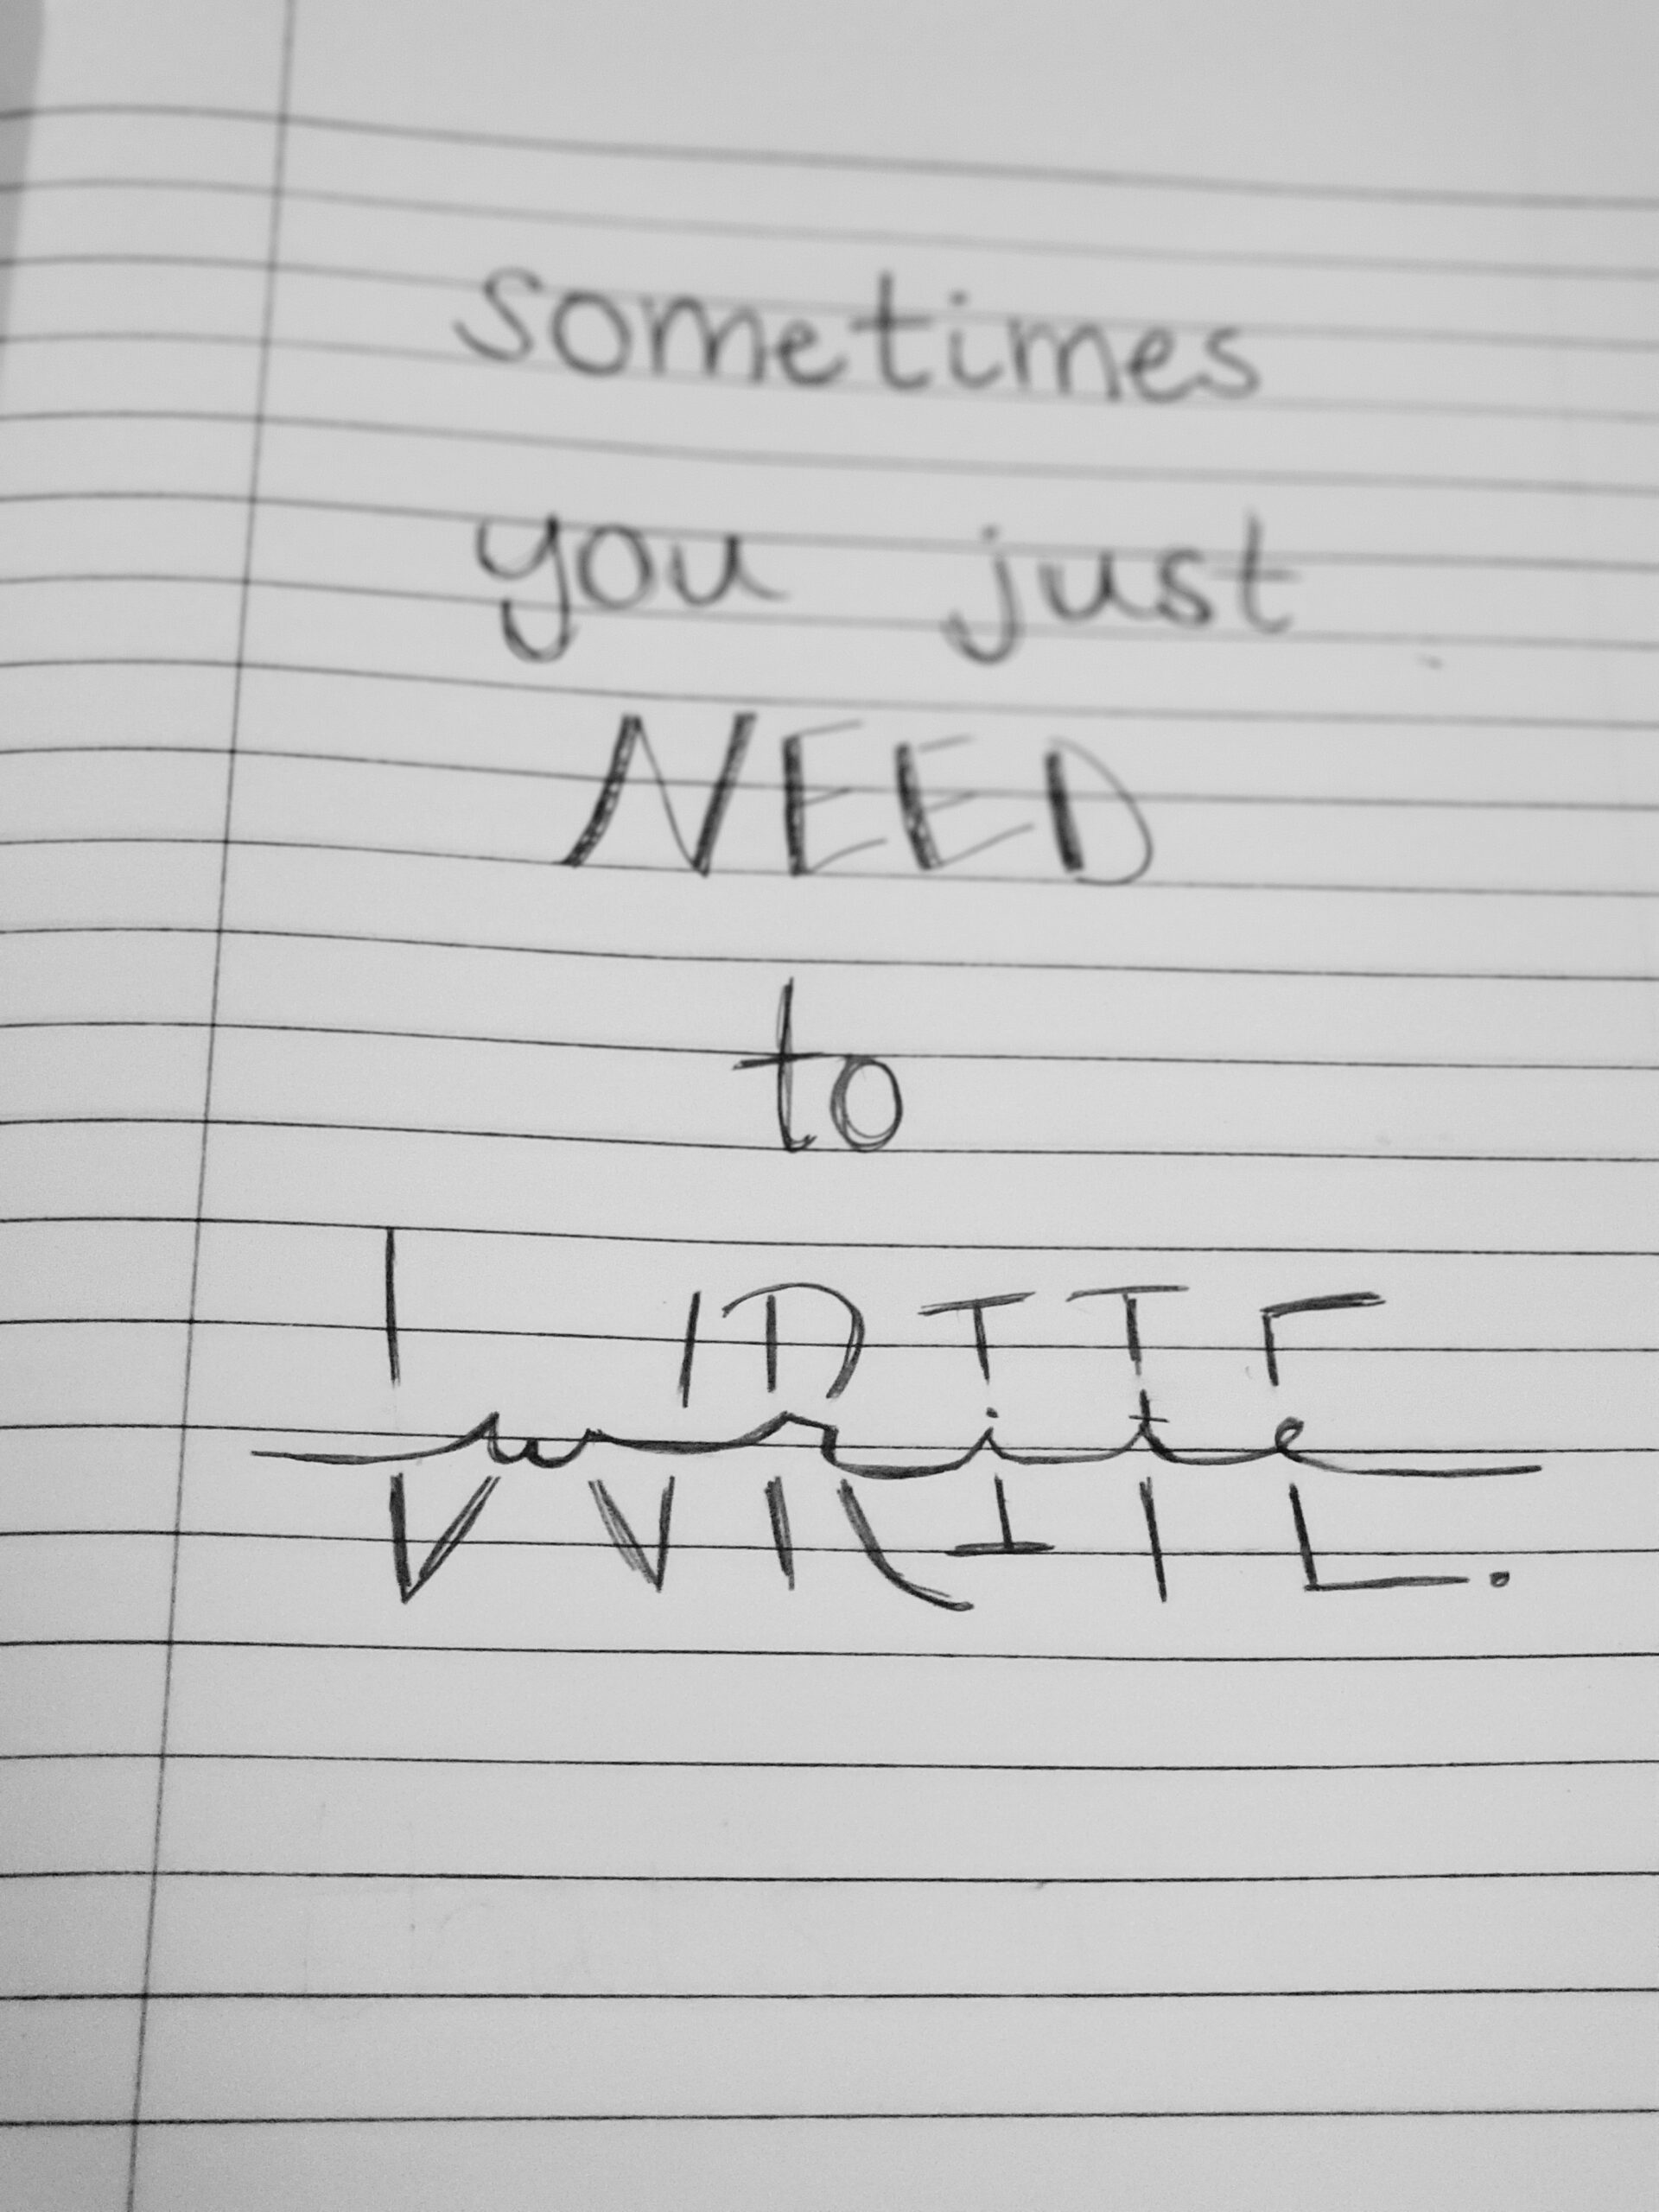 sometimes
you just
NEED
to
WRITE.
write